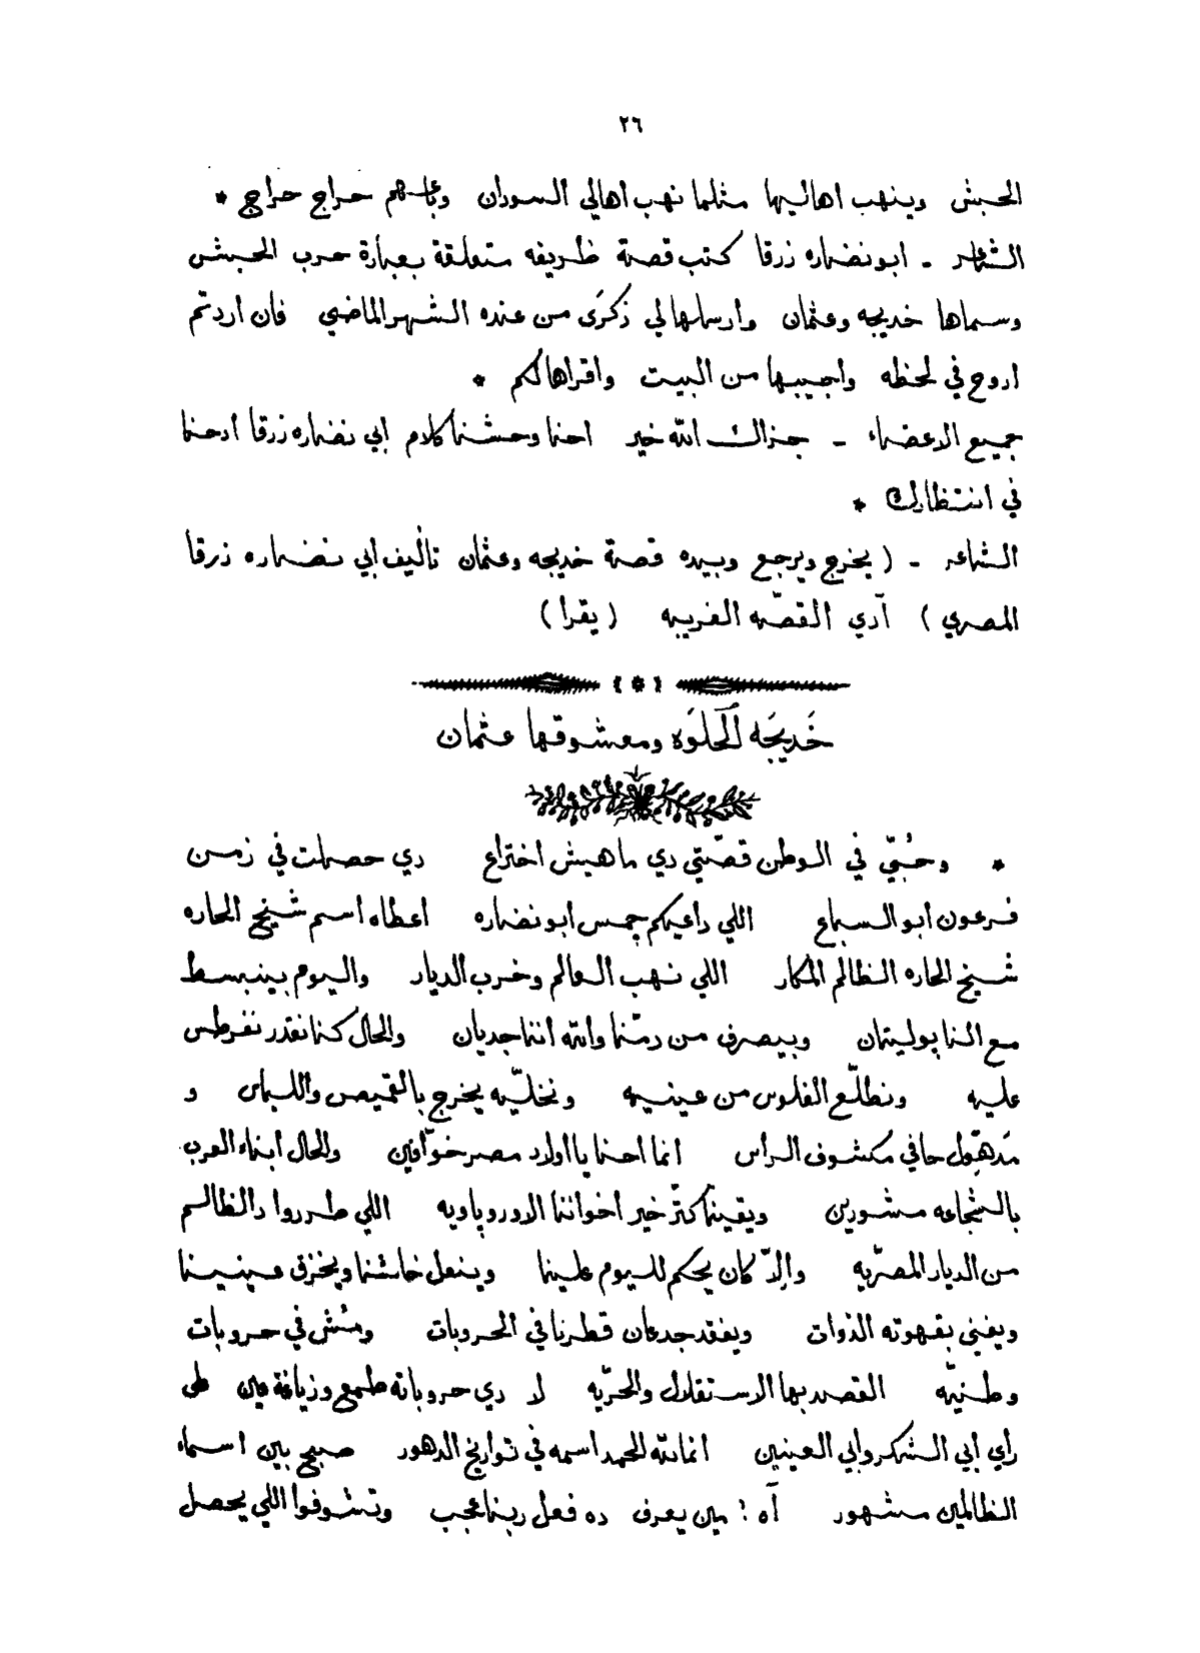 ٢٦
الحبش وينهب اهاليها مثلما نهب اهالي السودان وباعهم حراج حراج *
الشاعر - ابو نضاره زرقا كتب قصة ظريفه متعلقة بعبارة حرب الحبش
وسماها خديجه وعثمان وارسلها لي ذكرَى من عنده الشهر الماضي فان اردتم
اروح في لحظه واجيبها من البيت واقراها لكم *
جميع الاعضاء - جزاك الله خير احنا وحشنا كلام ابي نضاره زرقا ادحنا
في انتظارك *
الشاعر - ( يخرج ويرجع وبيده قصة خديجه وعثمان تاليف ابي نضاره زرقا
المصري ) آدي القصّه الغريبه ( يقرا )
خَديجَه الحلوَه ومعشوقها عثمان
* وحُبّي في الوطن قصّتي دي ماهيش اختراع دي حصلت في زمن
فرعون ابو السباع اللي داعيكم جمس ابو نضاره اعطاه اسم شيخ الحاره
شيخ الحاره الظالم المكار اللي نهب العالم وخرب الديار واليوم بينبسط
مع النابوليتان وبيصرف من دمّنا والله اننا جديان والحال كنا نقدر نفرطس
عليه ونطلّع الفلوس من عينيه ونخلّيه يخرج بالقميص واللباس و
مَدهوّل حافي مكشوف الراس انما احنا يا اولاد مصر خوّافين والحال ابناء العرب
بالشجاعه مشورين ويقينا كتّر خير اخواننا الاوروپاويه اللي طردوا دالظالم
من الديار المصرّيه والّا كان يحكم لليوم علينا وينعل خاشنا ويخزق عينينا
ويغني بقهوته الذوات ويفقد جدعان قطرنا في الحروبات ومش في حروبات
وطنيّه القصد بها الاستقلال والحرّيه لا دي حروباته طمع وزياغة عين على
راي ابي الشكر وابي العينين انما لله الحمد اسمه في تواريخ الدهور صبح بين اسماء
الظالمين مشهور آه ! مين يعرف ده فعل ربنا عجب وتشوفوا اللي يحصل